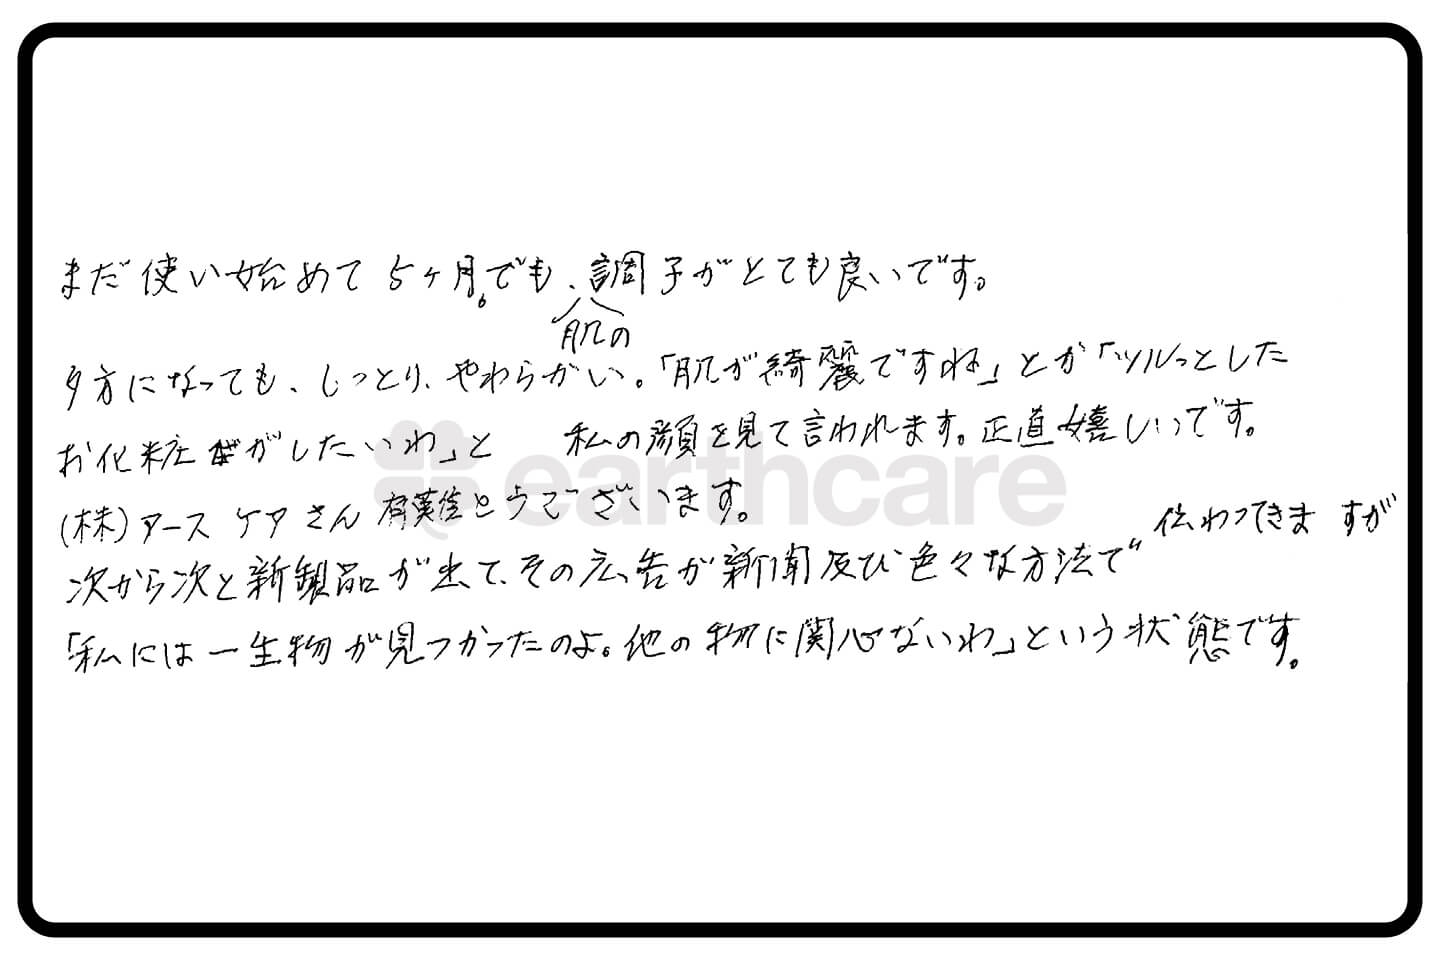 まだ使い始めて5ヶ月。でも、調子がとても良いです。
肌の
夕方になっても、しっとり、やわらかい。「肌が綺麗ですね」とか「ツルっとした
お化粧がしたいわ」と 私の顔を見て言われます。正直嬉しいです。
earthcare
(株)アース ケアさん 有難とうございます。
伝わってきますが
次から次と新製品が出て、その広告が新聞及び色々な方法で
「私には一生物が見つかったのよ。他の物に関心ないわ」という状態です。